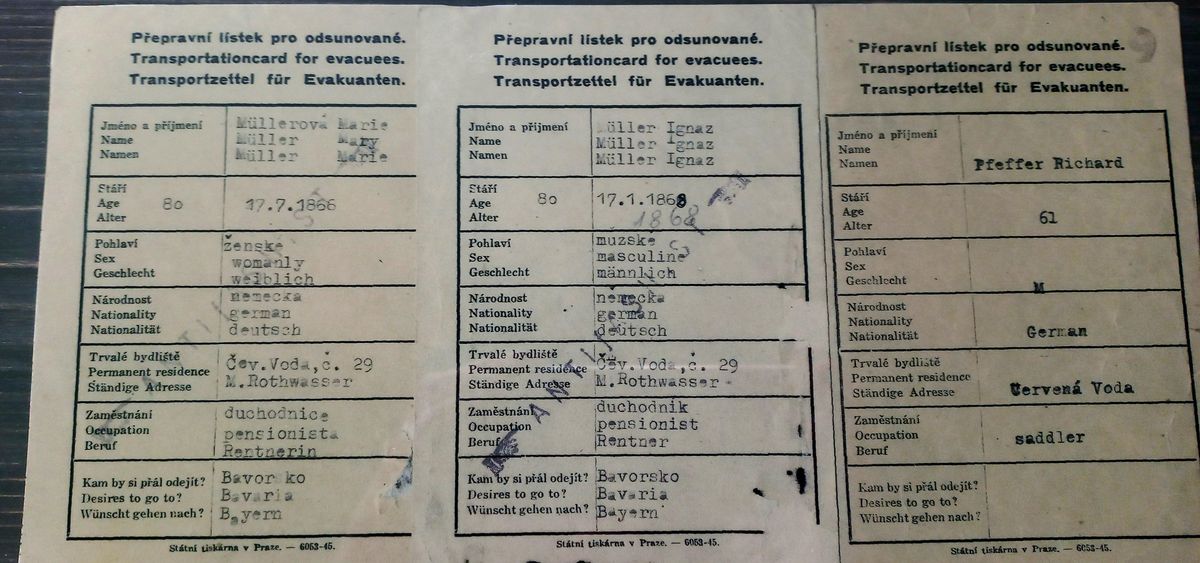 Přepravní lístek pro odsunované.
Transportationcard for evacuees.
Transportzettel für Evakuanten.
Jméno a příjmení Müllerová Marie
Name Müller Mary
Namen Müller Marie
Stáří
Age 80 17.7.1866
Alter
Pohlaví ženske
Sex womanly
Geschlecht weiblich
Národnost nemecka
Nationality german
Nationalität deutsch
Trvalé bydliště
Permanent residence Čev.Voda,č. 29
Ständige Adresse M.Rothwasser
Zaměstnání duchodnice
Occupation pensionista
Beruf Rentnerin
Kam by si přál odejít? Bavorsko
Desires to go to? Bavaria
Wünscht gehen nach? Bayern
Státní tiskárna v Praze. — 6053-45.
Přepravní lístek pro odsunované.
Transportationcard for evacuees.
Transportzettel für Evakuanten.
Jméno a příjmení Müller Ignaz
Name Müller Ignaz
Namen Müller Ignaz
Stáří
Age 80 17.1.1868
Alter 1868
Pohlaví muzske
Sex masculine
Geschlecht männlich
Národnost německa
Nationality german
Nationalität deutsch
Trvalé bydliště
Permanent residence Čev.Voda,č. 29
Ständige Adresse M.Rothwasser
Zaměstnání duchodnik
Occupation pensionist
Beruf Rentner
Kam by si přál odejít? Bavorsko
Desires to go to? Bavaria
Wünscht gehen nach? Bayern
Státní tiskárna v Praze. — 6053-45.
Přepravní lístek pro odsunované.
Transportationcard for evacuees.
Transportzettel für Evakuanten.
Jméno a příjmení
Name
Namen Pfeffer Richard
Stáří
Age
Alter 61
Pohlaví
Sex
Geschlecht M
Národnost
Nationality
Nationalität German
Trvalé bydliště
Permanent residence
Ständige Adresse Červená Voda
Zaměstnání
Occupation saddler
Beruf
Kam by si přál odejít?
Desires to go to?
Wünscht gehen nach?
Státní tiskárna v Praze. — 6053-45.